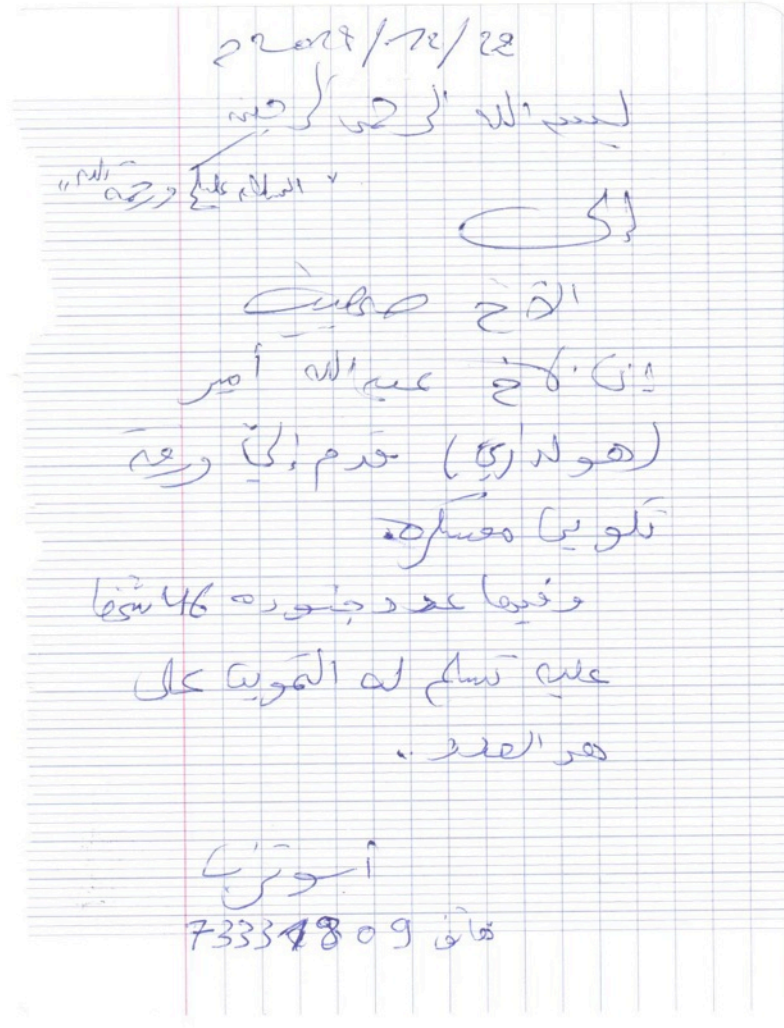 2017/12/22م
بسم الله الرحمن الرحيم
"السلام عليكم ورحمة الله"
إلى
الأخ صهيب
إن الأخ عبد الله أمير
قدم إلي ورقة
تكوين معسكره.
وفيها عدد جنوده 46 شخصا
عليه تسلم له التموين على
هذ العدد..
أبو تراب
هاتف